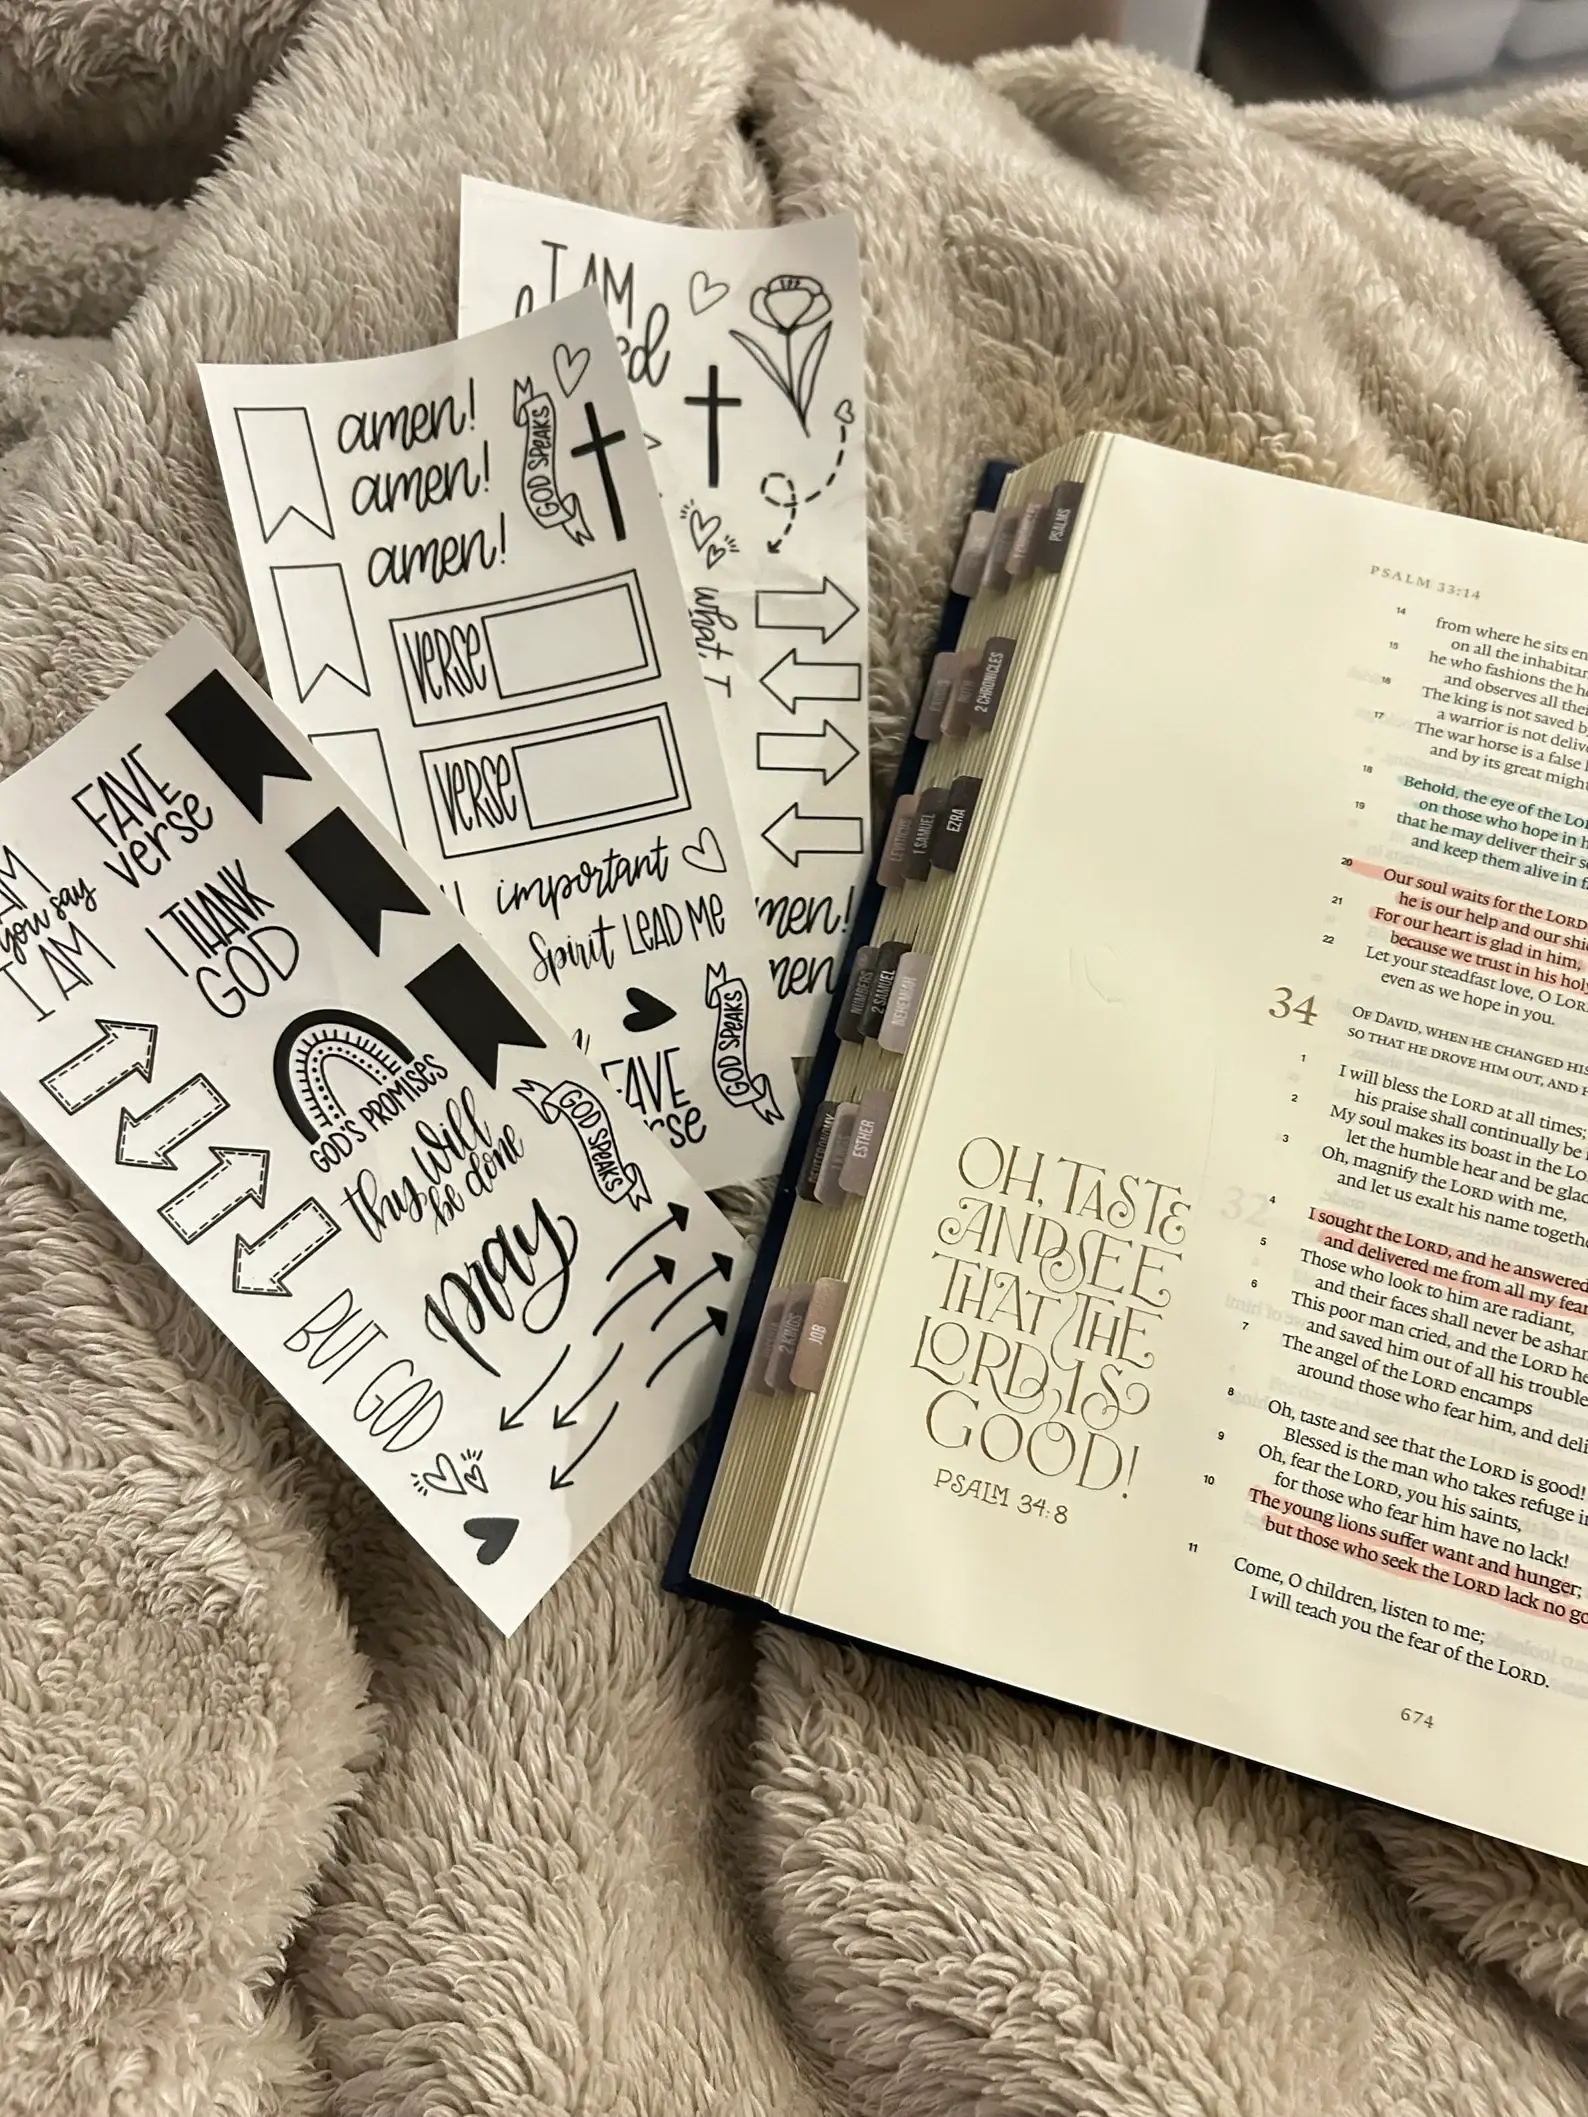 I AM
amen!
amen!
amen!
GOD SPEAKS
VERSE
VERSE
important
Spirit LEAD ME
GOD SPEAKS
what, I
FAVE
verse
you say
I AM
I THANK
GOD
GOD'S PROMISES
thy will
be done
GOD SPEAKS
pray
BUT GOD
PSALMS
2 CHRONICLES
LEVITICUS
1 SAMUEL
EZRA
NUMBERS
2 SAMUEL
NEHEMIAH
DEUTERONOMY
ESTHER
2 KINGS
JOB
OH, TASTE
AND SEE
THAT THE
LORD IS
GOOD!
PSALM 34:8
PSALM 33:14
14 from where he sits
15 on all the
he who fashions the
16 and observes all
The king is not saved
17 a warrior is not
The war horse is a false
and by its great
18 Behold, the eye of the
19 on those who hope in
that he may deliver their
and keep them alive in
20 Our soul waits for the LORD
21 he is our help and our
For our heart is glad in him,
22 because we trust in his
Let your steadfast love, O
even as we hope in you.
34 OF DAVID, WHEN HE CHANGED
SO THAT HE DROVE HIM OUT, AND
1 I will bless the LORD at all times;
2 his praise shall continually be
My soul makes its boast in the
3 let the humble hear and be
Oh, magnify the LORD with me,
and let us exalt his name
4 I sought the LORD, and he answered
5 and delivered me from all my
Those who look to him are radiant,
6 and their faces shall never be
This poor man cried, and the LORD
7 and saved him out of all his
The angel of the LORD encamps
around those who fear him, and
8 Oh, taste and see that the LORD is good!
9 Blessed is the man who takes refuge
Oh, fear the LORD, you his saints,
10 for those who fear him have no lack!
The young lions suffer want and hunger;
but those who seek the LORD lack no
11 Come, O children, listen to me;
I will teach you the fear of the LORD.
674